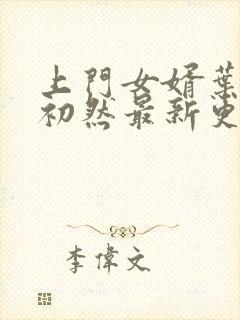 上門女婿葉
初然最新更
李偉文